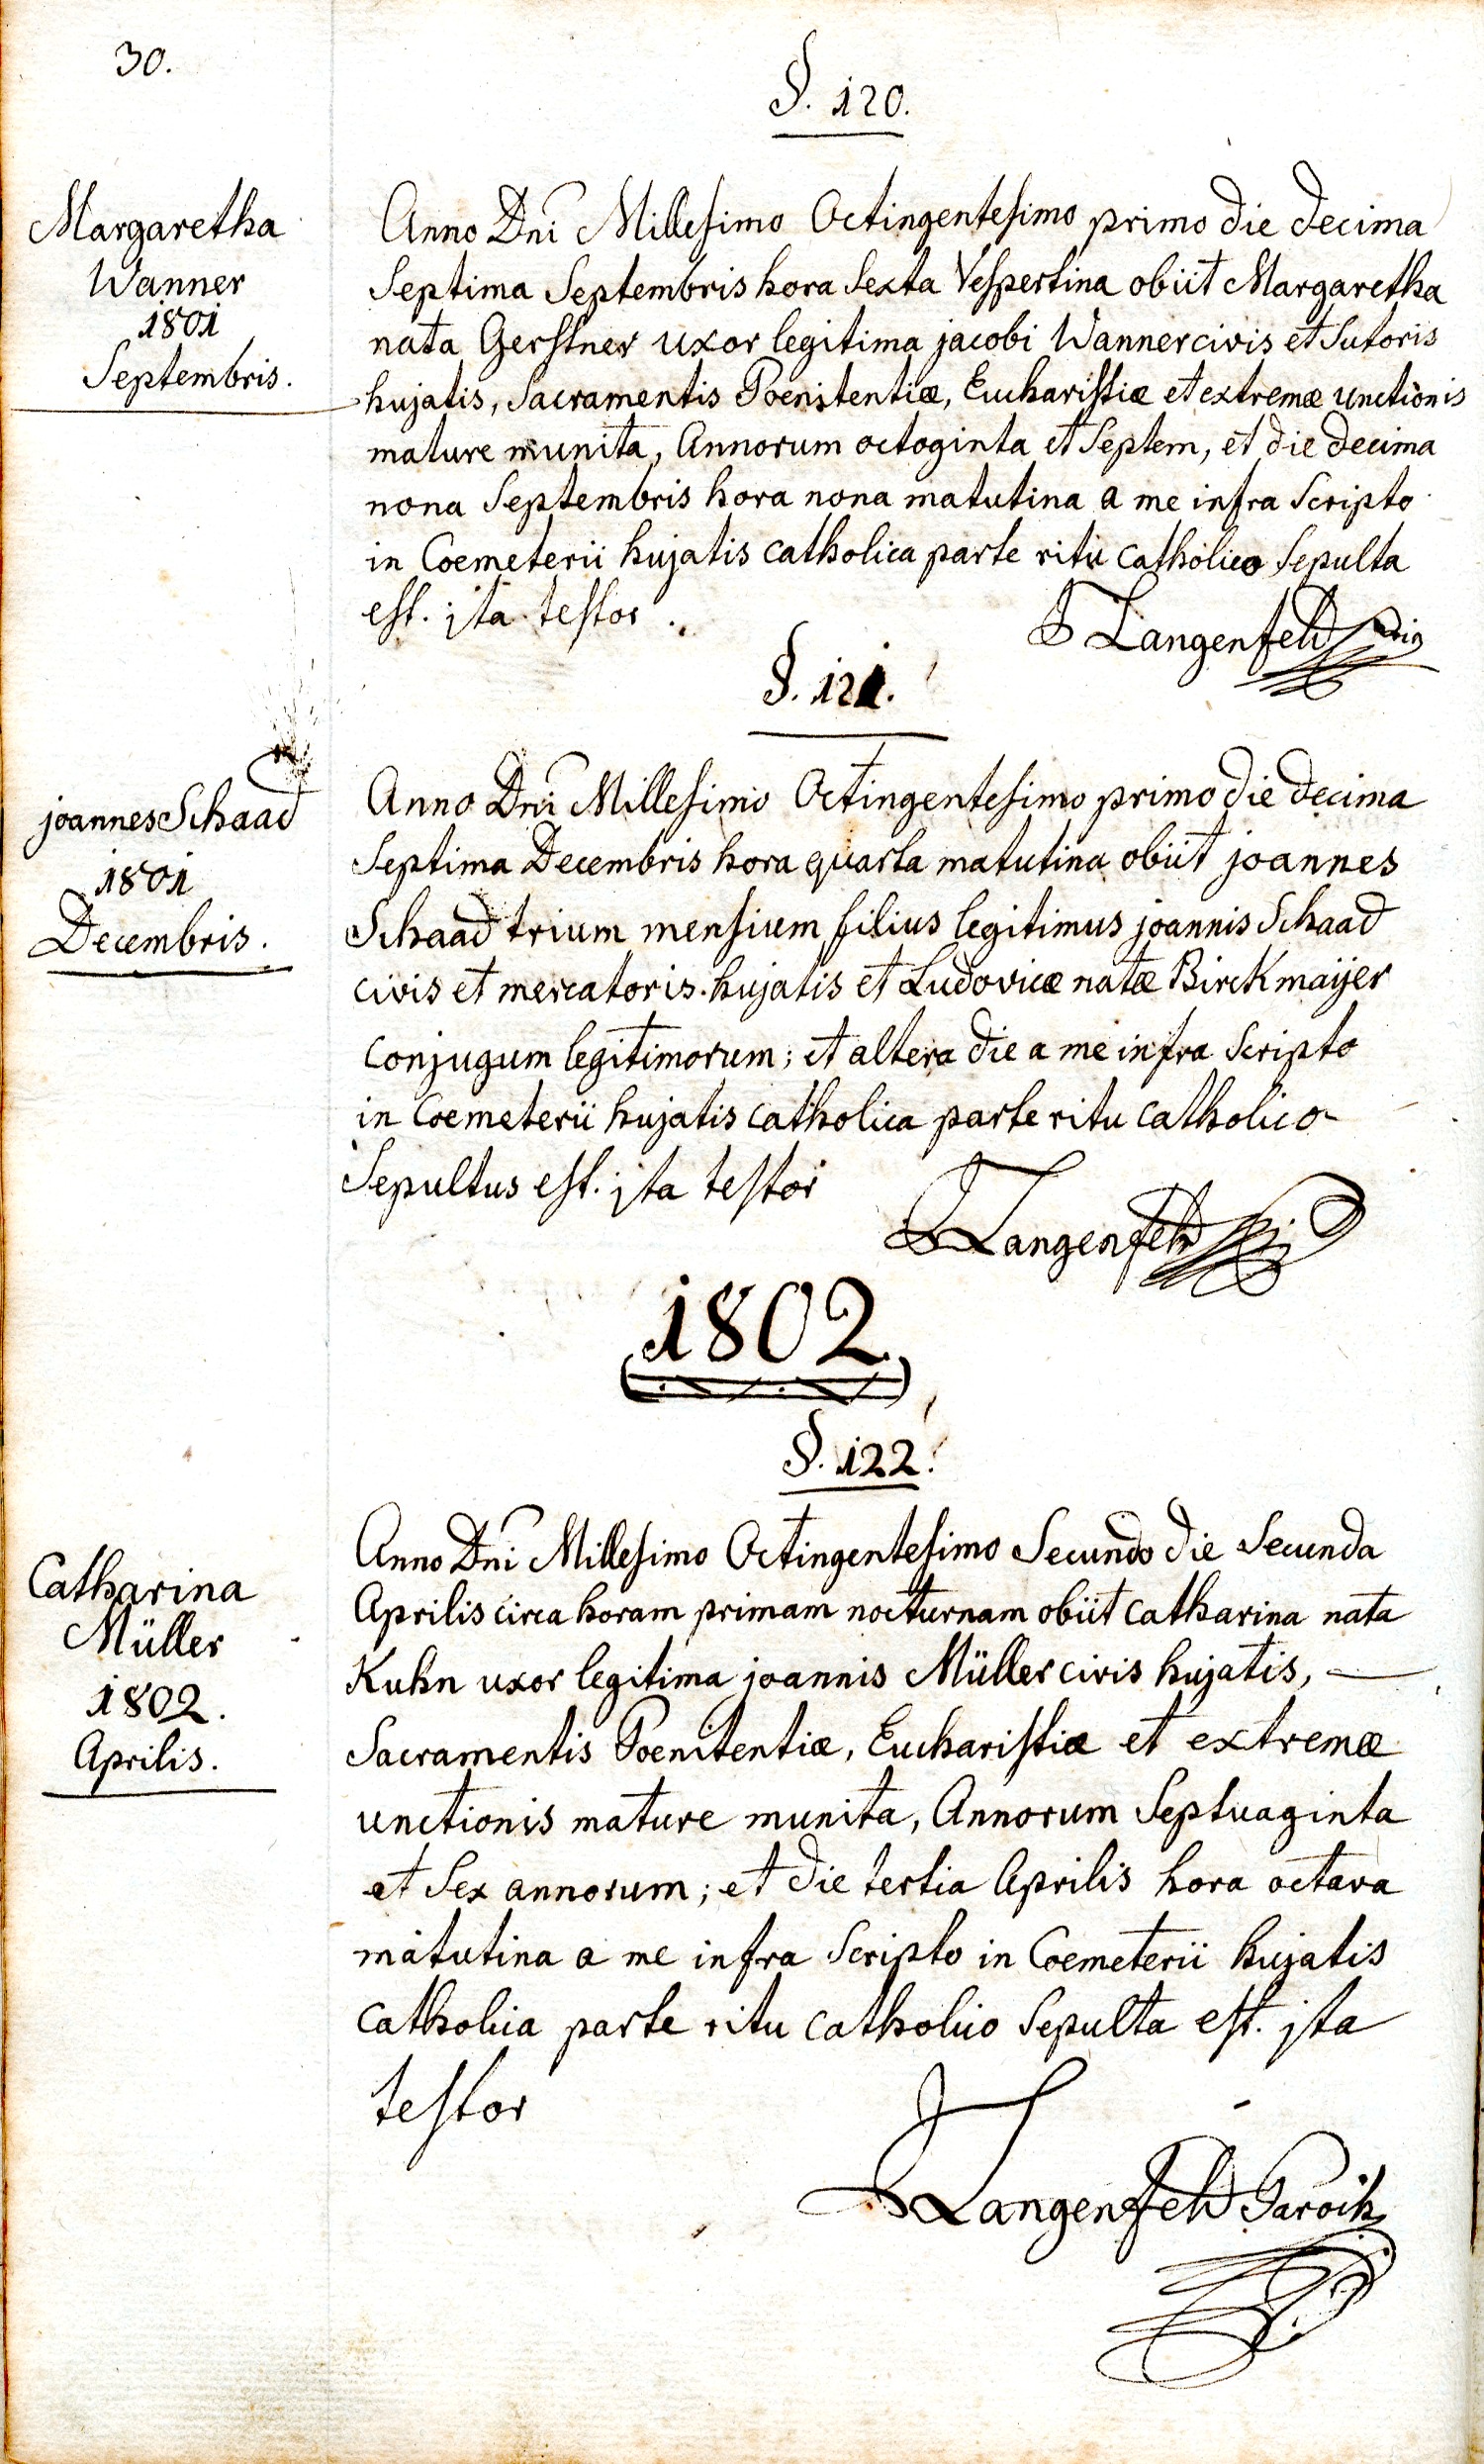 30.
§. 120.
Margaretha
Wanner
1801
Septembris.
Anno Dni Millesimo Octingentesimo primo die decima
Septima Septembris hora Sexta Vespertina obiit Margaretha
nata Gerstner uxor legitima jacobi Wanner civis et Sutoris
hujatis, Sacramentis Poenitentiæ, Eucharistiæ et extremæ unctionis
mature munita, Annorum octoginta et Septem, et die decima
nona Septembris hora nona matutina a me infra Scripto
in Coemeterii hujatis catholica parte ritu catholico Sepulta
est. jta testor.
Langenfeld
§. 121.
joannes Schaad
1801
Decembris.
Anno Dni Millesimo Octingentesimo primo die decima
Septima Decembris hora quarta matutina obiit joannes
Schaad trium mensium filius legitimus joannis Schaad
civis et mercatoris hujatis et Ludovicæ natæ Birckmaijer
Conjugum legitimorum; et altera die a me infra Scripto
in Coemeterii hujatis catholica parte ritu catholico
Sepultus est. jta testor
Langenfeld
1802
§. 122.
Catharina
Müller
1802.
Aprilis.
Anno Dni Millesimo Octingentesimo Secundo die Secunda
Aprilis circa horam primam nocturnam obiit catharina nata
Kuhn uxor legitima joannis Müller civis hujatis, —
Sacramentis Poenitentiæ, Eucharistiæ et extremæ
unctionis mature munita, Annorum Septuaginta
et Sex annorum; et die tertia Aprilis hora octava
matutina a me infra Scripto in Coemeterii hujatis
catholica parte ritu catholico Sepulta est. jta
testor
Langenfeld